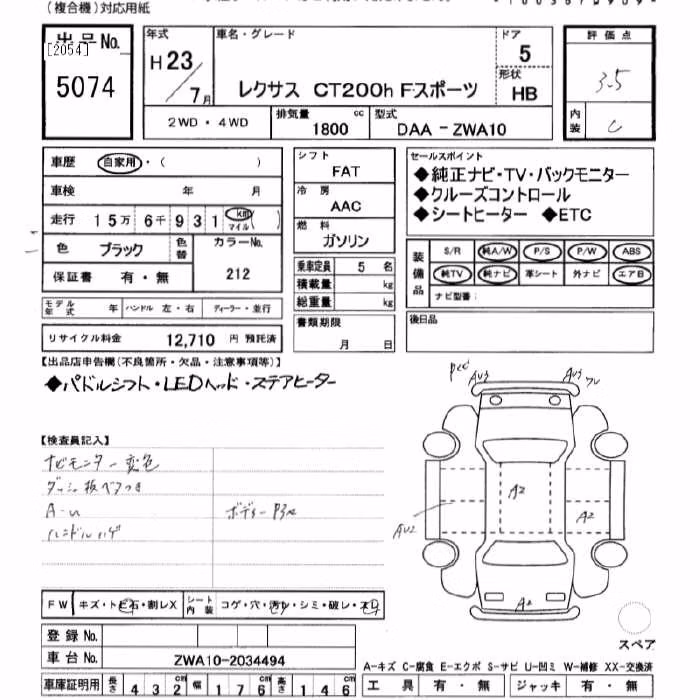 (複合機)対応用紙
出品No.
[2054]
5074
年式
H23/7月
車名・グレード
レクサス CT200h Fスポーツ
ドア
5
形状
HB
評価点
3.5
内装
C
2WD・4WD
排気量 cc
1800
型式
DAA-ZWA10
車歴 自家用・( )
車検 年 月
走行 15万6千931 km マイル ( )
色 ブラック 色替 カラーNo.
保証書 有・無 212
モデル年式 年 ハンドル 左・右 ディーラー・並行
リサイクル料金 12,710 円 預託済
シフト
FAT
冷房
AAC
燃料
ガソリン
乗車定員 5 名
積載量 kg
総重量 kg
書類期限
月 日
セールスポイント
◆純正ナビ・TV・バックモニター
◆クルーズコントロール
◆シートヒーター ◆ETC
装備品
S/R 純A/W P/S P/W ABS
純TV 純ナビ 革シート 外ナビ エアB
ナビ型番:
後日品
【出品店申告欄(不良箇所・欠品・注意事項等)】
◆パドルシフト・LEDヘッド・ステアヒーター
【検査員記入】
ナビモニター変色
ダッシュ板ベタつき
A-U
ハンドルハゲ
AU3
AU3
A2
A2
AU2
A2
FW キズ・トビ石・割レX シート内装 コゲ・穴・汚レ・シミ・破レ・スレ
登録No.
車台No. ZWA10-2034494
スペア
A-キズ C-腐食 E-エクボ S-サビ U-凹ミ W-補修 XX-交換済
車庫証明用 長さ 432 幅 176 高さ 146
工具 有・無 ジャッキ 有・無